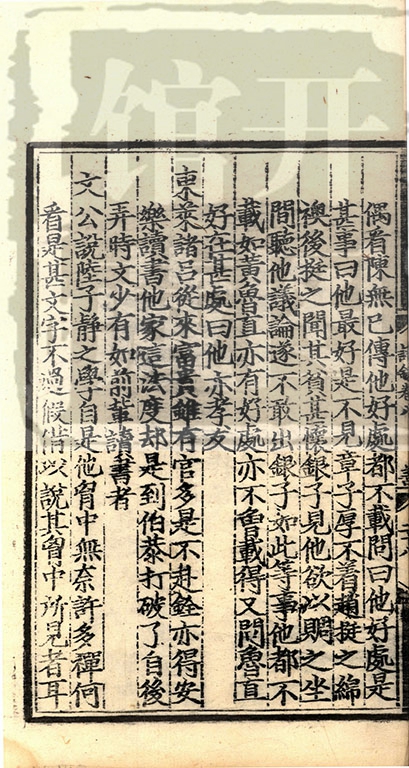 偶看陳無已傳他好處都不載問曰他好處是
甚事曰他最好是不見章子厚不着趙挺之綿
襖後挺之聞其貧甚懷銀子見他欲以賙之坐
間聽他議論遂不敢出銀子如此等事他都不
載如黃魯直亦有好處亦不曾載得又問魯直
好在甚處曰他亦孝友
東萊諸呂從來富貴雖有官多是不赴銓亦得安
樂讀書他家這法度却是到伯恭打破了自後
弄時文少有如前輩讀書者
文公說陸子靜之學自是他胷中無奈許多禪何
看是甚文字不過假借以說其胷中所見者耳
开
馆